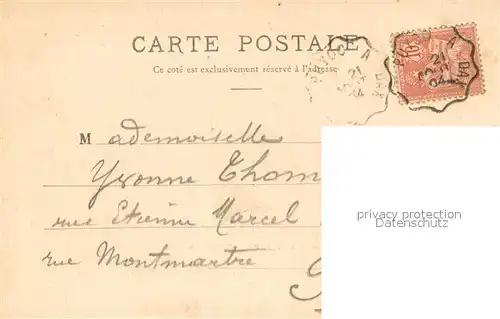 CARTE POSTALE
Ce côté est exclusivement réservé à l'adresse
Mademoiselle
Yvonne Thom
rue Etienne Marcel
rue Montmartre
privacy protection
Datenschutz